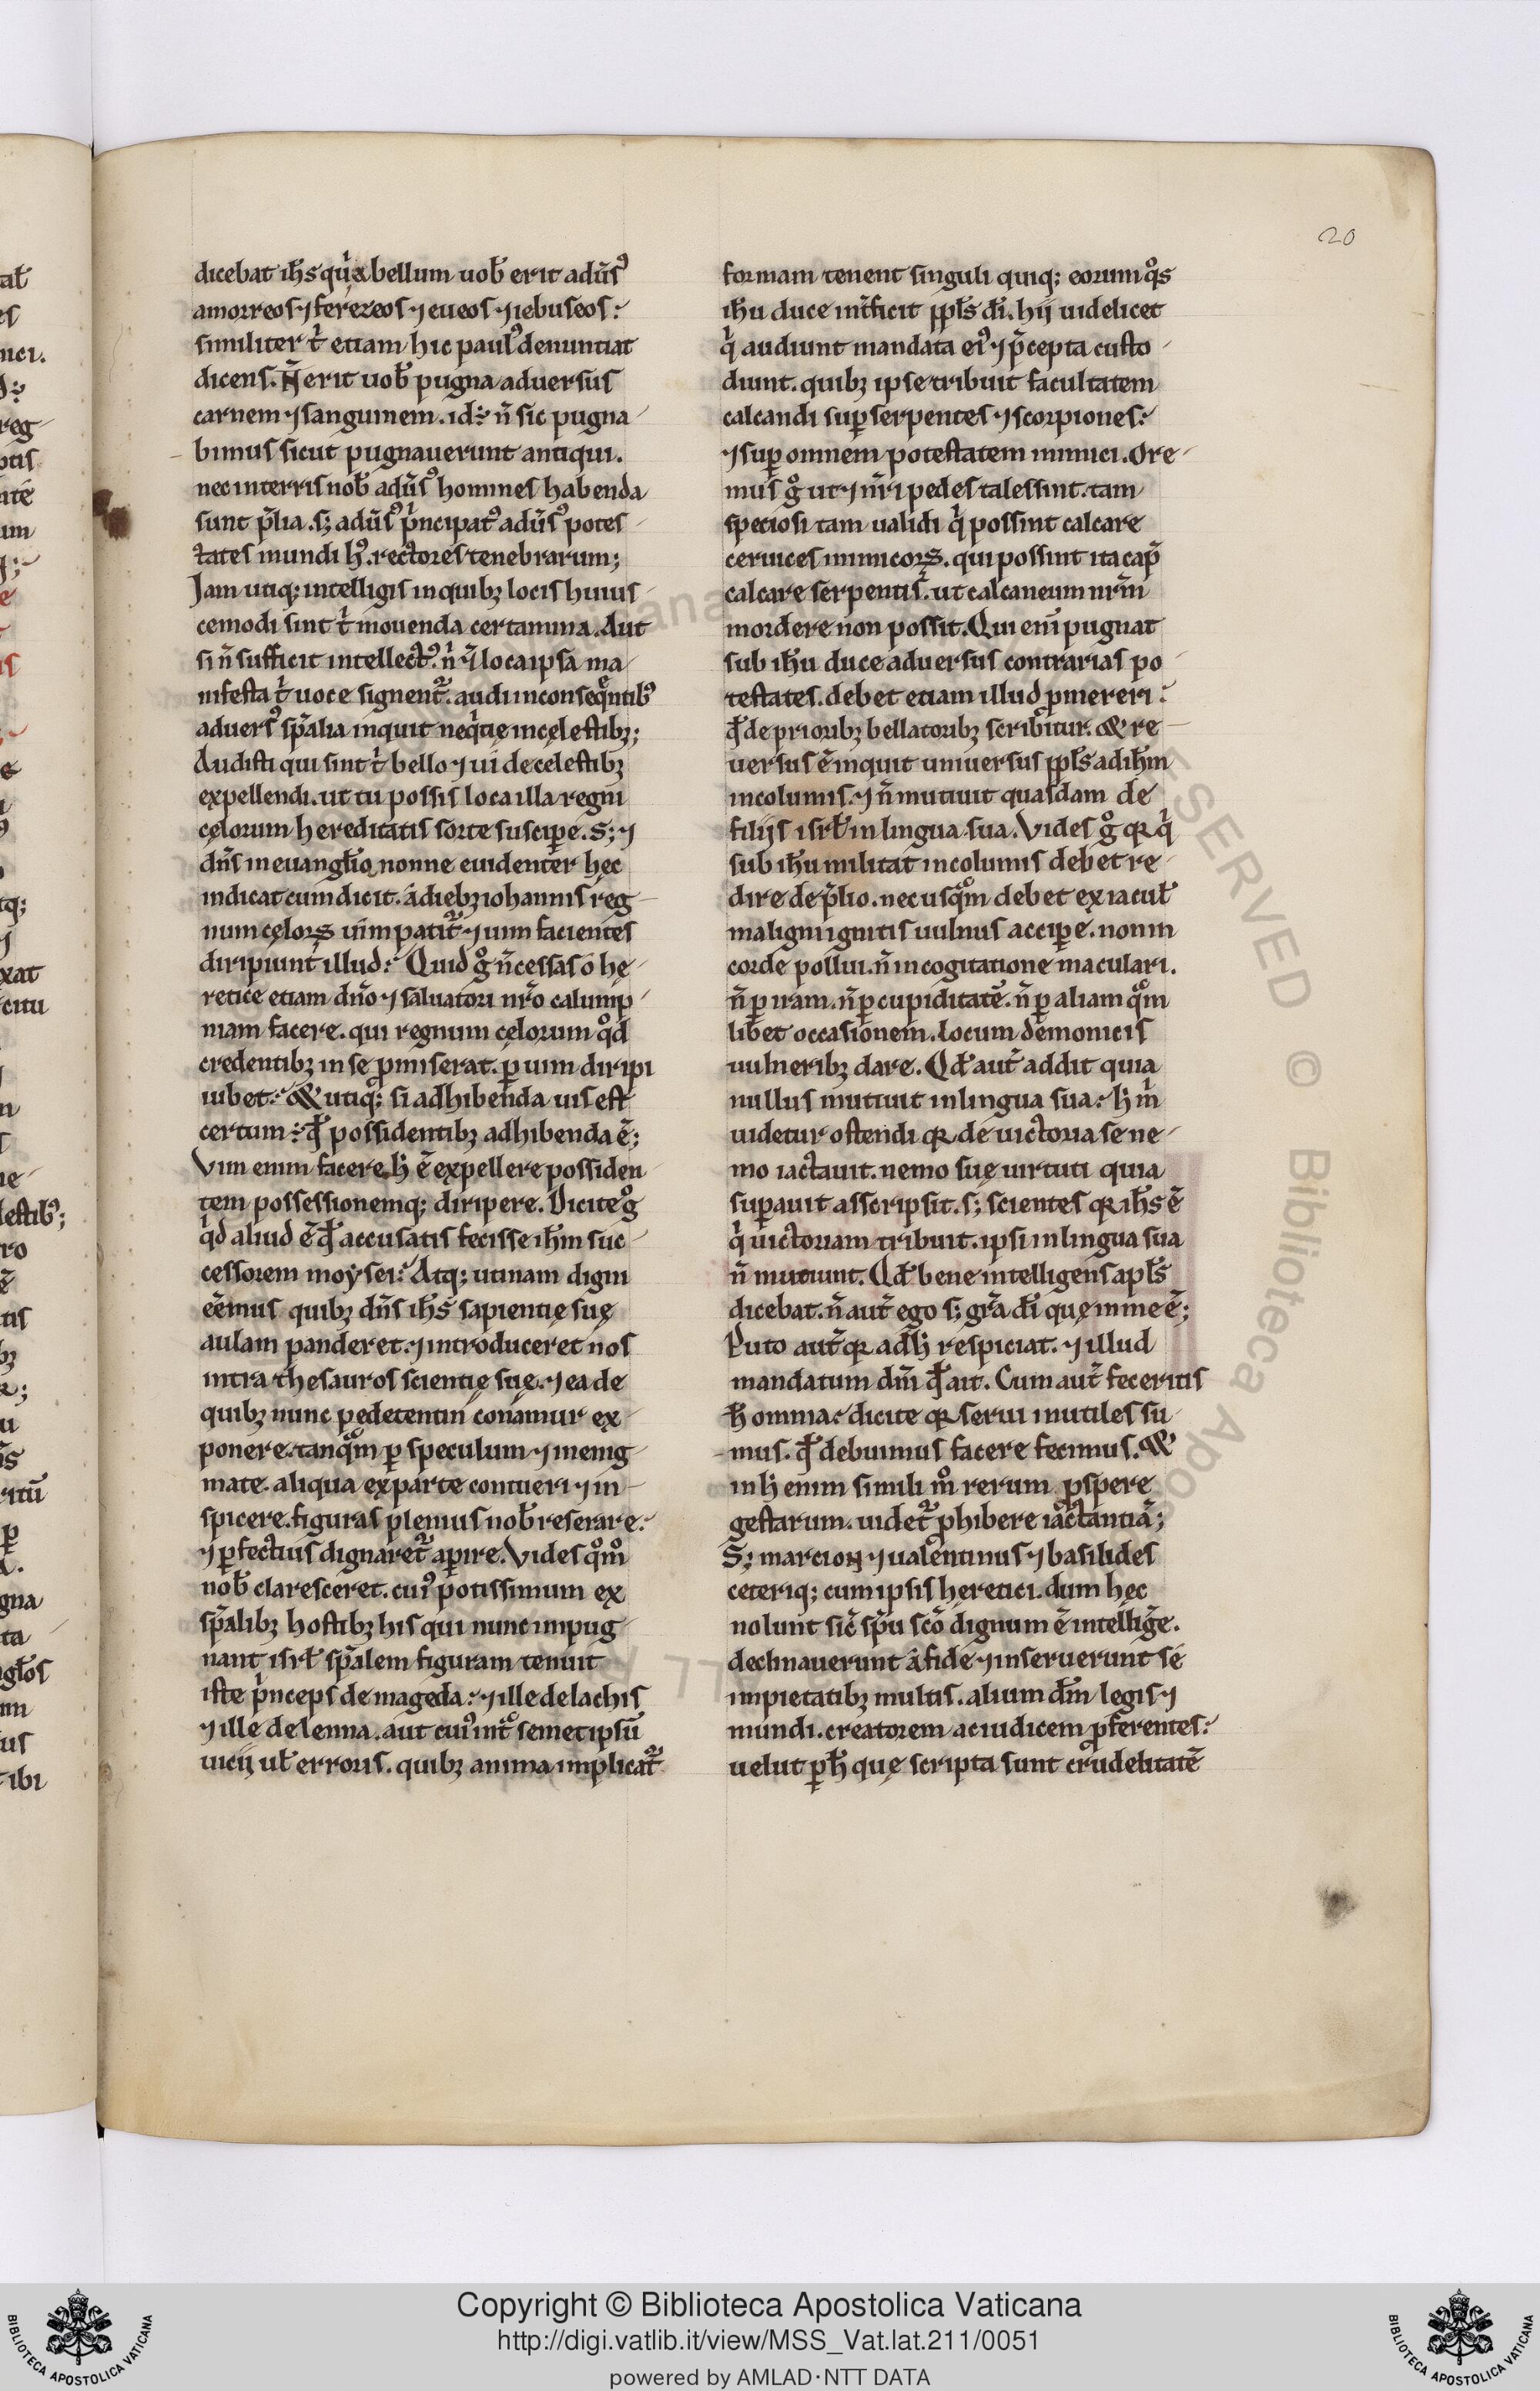 20
dicebat ih̅s quia bellum uob̅ erit adu̅sꝰ
amorreos ⁊ ferezeos ⁊ eueos ⁊ iebuseos:
similiter t̊ etiam hic paulꝰ denuntiat
dicens. N̅ erit uob̅ pugna aduersus
carnem ⁊ sanguinem. id÷ n̅ sic pugna-
bimus sicut pugnauerunt antiqui.
nec in terris nob̅ adu̅sꝰ homines habenda
sunt p̅lia. s; adu̅sꝰ p̍ncipatꝰ adu̅sꝰ potes-
tates mundi hꝰ. rectores tenebrarum;
Jam utiq; intelligis in quibꝫ locis huius-
cemodi sint t̍ mouenda certamina. Aut
si n̅ sufficit intellectꝰ. n̍ loca ipsa ma-
nifesta t̍ uoce signent᷑. audi in conseq̅ntibꝰ
aduersꝰ sp̅alia inquit neq̍tię in cęlestibꝫ;
Audisti qui sint t̍ bello ⁊ ui de celestibꝫ
expellendi. ut tu possis loca illa regni
cęlorum hereditatis sorte suscipe̅. S; ⁊
dn̅s in euangl̅io nonne euidenter hęc
indicat cum dicit. a diebꝫ iohannis reg-
num cęloꝝ uim patit᷑ ⁊ uim facientes
diripiunt illud: Quid g̊ n̅ cessas o hę-
retice etiam dn̅o ⁊ saluatori nr̅o calump-
niam facere. qui regnum cęlorum q̊d
credentibꝫ in se ꝓmiserat. ꝑ uim diripi
iubet: & utiq; si adhibenda uis est
certum÷ qd̅ possidentibꝫ adhibenda e̅;
Vim enim facere h̍ e̅ expellere possiden-
tem possessionemq; diripere. Dicite g̊
q̍d aliud e̅ qd̅ accusatis fecisse ih̅m suc-
cessorem moẏsei: Atq; utinam digni
ee̅mus quibꝫ dn̅s ih̅s sapientię suę
aulam panderet. ⁊ introduceret nos
intra thesauros scientię suę. ⁊ ea de
quibꝫ nunc pedetentin conamur ex-
ponere. tanq̊m ꝑ speculum ⁊ in enig-
mate. aliqua ex parte contueri ⁊ in-
spicere. figuras plenius nob̅ reserare:
⁊ ꝑfectius dignaret᷑ aꝑire. Vides q̊m̊
nob̅ claresceret. cuiꝰ potissimum ex
sp̅alibꝫ hostibꝫ his qui nunc impug-
nant isrl̅ sp̅alem figuram tenuit
iste p̍nceps de mageda: ⁊ ille de lachis
⁊ ille de lenna. aut cuiꝰ int᷑ semetipsu̅
uicij ul̅ erroris. quibꝫ anima implicat᷑
formam tenent singuli quiq; eorum q̊s
ih̅u duce int̅ficit ppl̅s di̅. hij uidelicet
q̍ audiunt mandata eiꝰ ⁊ p̅cepta custo-
diunt. quibꝫ ipse tribuit facultatem
calcandi suꝑ serpentes ⁊ scorpiones:
⁊ suꝑ omnem potestatem inimici. Ore-
mus g̊ ut ⁊ nr̅i pedes tales sint. tam
speciosi tam ualidi q̍ possint calcare
ceruices inimicoꝝ. qui possint ita cap̅
calcare serpentis. ut calcaneum nr̅m
mordere non possit. Qui eni̅ pugnat
sub ih̅u duce aduersus contrarias po-
testates. debet etiam illud ꝓmereri:
qd̅ de prioribꝫ bellatoribꝫ scribitur. & re-
uersus e̅ inquit uniuersus ppl̅s ad ih̅m
incolumis. ⁊ n̅ mutiuit quasdam de
filijs isrl̅ in lingua sua. Vides g̊ qꝛ q̍
sub ih̅u militat incolumis debet re-
dire de p̅lio. nec usq̊m debet ex iacul̅
maligni ignitis uulnus accipe̅. non in
corde pollui. n̅ in cogitatione maculari.
n̅ ꝑ iram. n̅ ꝑ cupiditate̅. n̅ ꝑ aliam q̊m
libet occasionem. locum demonicis
uulneribꝫ dare. Qd̅ aut᷑ addit quia
nullus mutiuit in lingua sua: h̍ m̍
uidetur ostendi qꝛ de uictoria se ne-
mo iactauit. nemo suę uirtuti quia
suꝑauit asscripsit. s; scientes qꝛ ih̅s e̅
q̍ uictoriam tribuit. ipsi in lingua sua
n̅ mutiunt. Qd̅ bene intelligens apl̅s
dicebat. n̅ aut᷑ ego s; gr̅a di̅ quę in me e̅;
Puto aut᷑ qꝛ ad h̍ respiciat. ⁊ illud
mandatum dn̅i qd̅ ait. Cum aut᷑ feceritis
h̅ omnia: dicite qꝛ serui inutiles su-
mus. qd̅ debuimus facere fecimus. &
in h̍ enim simili m̊ rerum ꝓspere
gestarum. uidet᷑ ꝓhibere iactantia̅;
S; marcion ⁊ ualentinus ⁊ basilides
ceteriq; cum ipsis heretici. dum hęc
nolunt sic̅ sp̅u sc̅o dignum e̅ intellige̅.
declinauerunt a fide ⁊ inseruerunt se
impietatibꝫ multis. alium dm̅ legis ⁊
mundi. creatorem ac iudicem ꝓferentes:
uelut ꝑ h̅ quę scripta sunt crudelitate̅
Copyright © Biblioteca Apostolica Vaticana
http://digi.vatlib.it/view/MSS_Vat.lat.211/0051
powered by AMLAD·NTT DATA
BIBLIOTECA APOSTOLICA VATICANA
BIBLIOTECA APOSTOLICA VATICANA